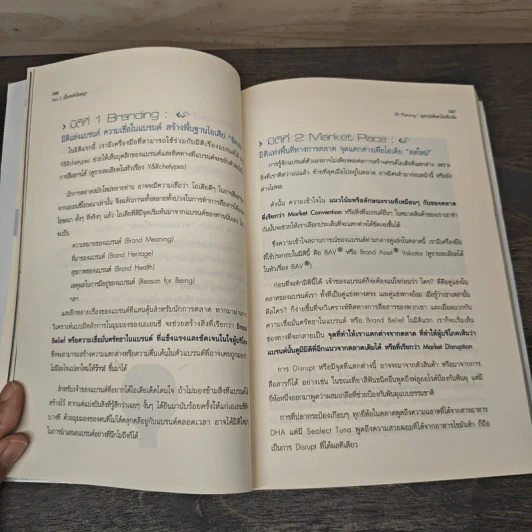 มิติที่ 1 Branding :
มิติแห่งแบรนด์ ความเชื่อในแบรนด์ สร้างพื้นฐานไอเดีย
ในมิติแรกนี้ เรามีเครื่องมือที่สามารถใช้ร่วมกับมิติเรื่องแบรนด์
Y&RArchetypes ช่วยให้เห็นบุคลิกของแบรนด์และทิศทางที่แบรนด์จะขยับตัว
การสื่อสารได้ (ดูรายละเอียดในหัวเรื่อง Y&RArchetypes)
นักการตลาดสมัยใหม่หลายท่าน อาจจะมีความเชื่อว่า ไอเดียดีๆ ในการสื่อสาร
จากเอเยนซี่โฆษณาเท่านั้น จึงผลักภาระทั้งหลายทั้งปวงในการทำการสื่อสารให้เอเยนซี่
โฆษณา ทั้งๆ ที่จริงๆ แล้ว ไอเดียที่ดีมีจุดเริ่มต้นมาจากแบรนด์ของท่านนั่นเอง
จะเป็น
ความหมายของแบรนด์ (Brand Meaning)
ที่มาของแบรนด์ (Brand Heritage)
สุขภาพของแบรนด์ (Brand Health)
เหตุผลในการมีอยู่ของแบรนด์ (Reason for Being)
ฯลฯ
และอีกหลายเรื่องของแบรนด์ที่แสนคุ้นสำหรับนักการตลาด หากมาผ่าน
วิเคราะห์แบบมีหลักการในมุมมองของเอเยนซี่ จะช่วยสร้างสิ่งที่เรียกว่า Brand
Belief หรือความเชื่อมั่นศรัทธาในแบรนด์ ที่แข็งแรงและชัดเจนในใจผู้บริโภค
ซึ่งจะสามารถสร้างความแตกต่างหรือความตื่นเต้นในตัวแบรนด์ที่อาจเคยถูกมองว่า
ไม่มีอะไรแปลกใหม่ได้ ขึ้นมาได้
สำหรับเจ้าของแบรนด์ที่อยากได้ไอเดียเด็ดโดนใจ ถ้าไม่มองข้ามสิ่งที่แบรนด์
สร้างไว้ หากแต่แบ่งปันสิ่งที่รู้สึกว่าเฉยๆ งั้นๆ ได้ยินมานับร้อยครั้งให้แก่เอเยนซี่
บางที ด้วยมุมมองของคนที่ไม่ได้คลุกคลีอยู่กับแบรนด์ตลอดเวลา อาจได้มิติใหม่
ในการนำเสนอแบรนด์อย่างที่นึกไม่ถึงก็ได้
3D Planning :
มิติที่ 2 Market Place :
มิติแห่งพื้นที่ทางการตลาด จุดแตกต่างเพื่อไอเดีย "สดใหม่"
การรู้จักแบรนด์ตัวเองอาจไม่เพียงพอต่อการสร้างสรรค์ไอเดียที่แตกต่าง เพราะ
สิ่งที่เราคิดว่าแน่แล้ว ถ้าเทียบกับสิ่งที่มีอยู่ในตลาด อาจมีคนทำมาก่อนหน้านี้ หรือยัง
ต่างไม่พอ
ดังนั้น ความเข้าใจใน แนวโน้มหรือลักษณะร่วมที่เหมือนๆ กันของตลาด
ที่เรียกว่า Market Convention หรือสิ่งที่แบรนด์อื่นๆ ในหมวดสินค้าของเราเขาทำ
กันนั้นจะช่วยให้เราเลือกประเด็นที่จะแตกต่างได้ชัดเจนขึ้น
ซึ่งความเข้าใจสถานการณ์ของแบรนด์ท่ามกลางคู่แข่งในตลาดนี้ เรามีเครื่องมือ
ที่ใช้ประกอบในมิตินี้ คือ BAV® หรือ Brand Asset® Valuator (ดูรายละเอียดได้
ในหัวเรื่อง BAV®)
ก่อนที่จะเข้ามิตินี้ได้ เจ้าของแบรนด์ก็จะต้องแน่ใจก่อนว่า ใคร? ที่คือคู่แข่งใน
ตลาดของแบรนด์เรา ทั้งที่เป็นคู่แข่งทางตรง และคู่แข่งทางอ้อม เมื่อรู้ว่าเขาเหล่านั้น
คือใคร? ก็ง่ายขึ้นที่จะวิเคราะห์ทิศทางการสื่อสารของพวกเขา และเมื่อผนวกกับ
ความเชื่อมั่นศรัทธาในแบรนด์ หรือ Brand Belief ในมิติแรก เราก็จะเริ่มเห็น
ช่องทางที่จะกลายเป็น จุดที่ทำให้เราแตกต่างจากตลาด ที่ทำให้ผู้บริโภคเห็นว่า
แบรนด์นั้นดูมีมิติที่ฉีกแนวจากตลาดเดิมได้ หรือที่เรียกว่า Market Disruption
การ Disrupt หรือฉีกจุดที่แตกต่างนี้ อาจจะมาจากตัวสินค้า หรือมาจากการ
สื่อสารก็ได้ อย่างเช่น ในขณะที่ยาสีฟันชนิดอื่นพูดถึงฟลูออไรด์ป้องกันฟันผุ แต่มี
ยี่ห้อหนึ่งออกมาพูดว่าผสมเกลือที่ช่วยป้องกันฟันผุแบบธรรมชาติ
การที่ปลากระป๋องเกือบๆ ทุกยี่ห้อในตลาดพูดถึงความฉลาดที่ได้จากสารอาหาร
DHA แต่มี Sealect Tuna พูดถึงความสวยผอมที่ได้จากอาหารไขมันต่ำ ก็ถือ
เป็นการ Disrupt ที่ได้ผลทีเดียว